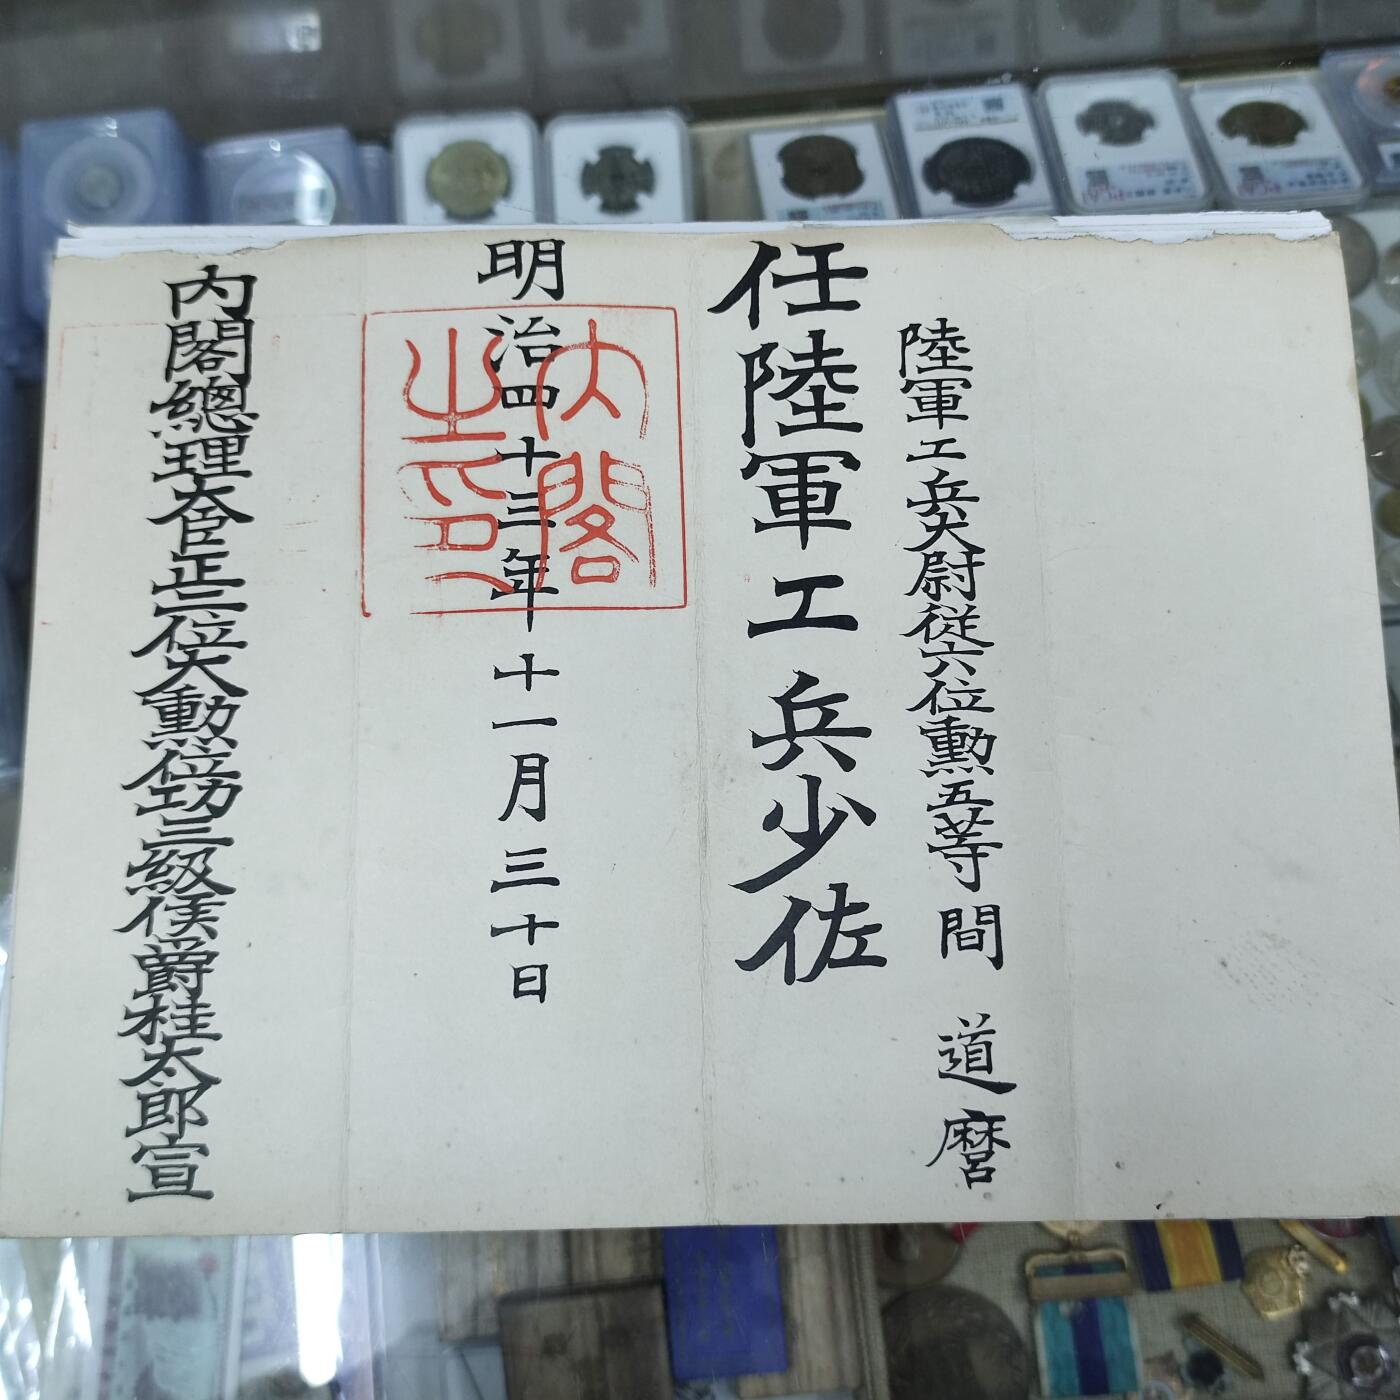 陸軍工兵大尉従六位勲五等間道麿
任陸軍工兵少佐
明治四十三年十一月三十日
内閣之印
内閣總理大臣正二位大勲位功三級侯爵桂太郎宣